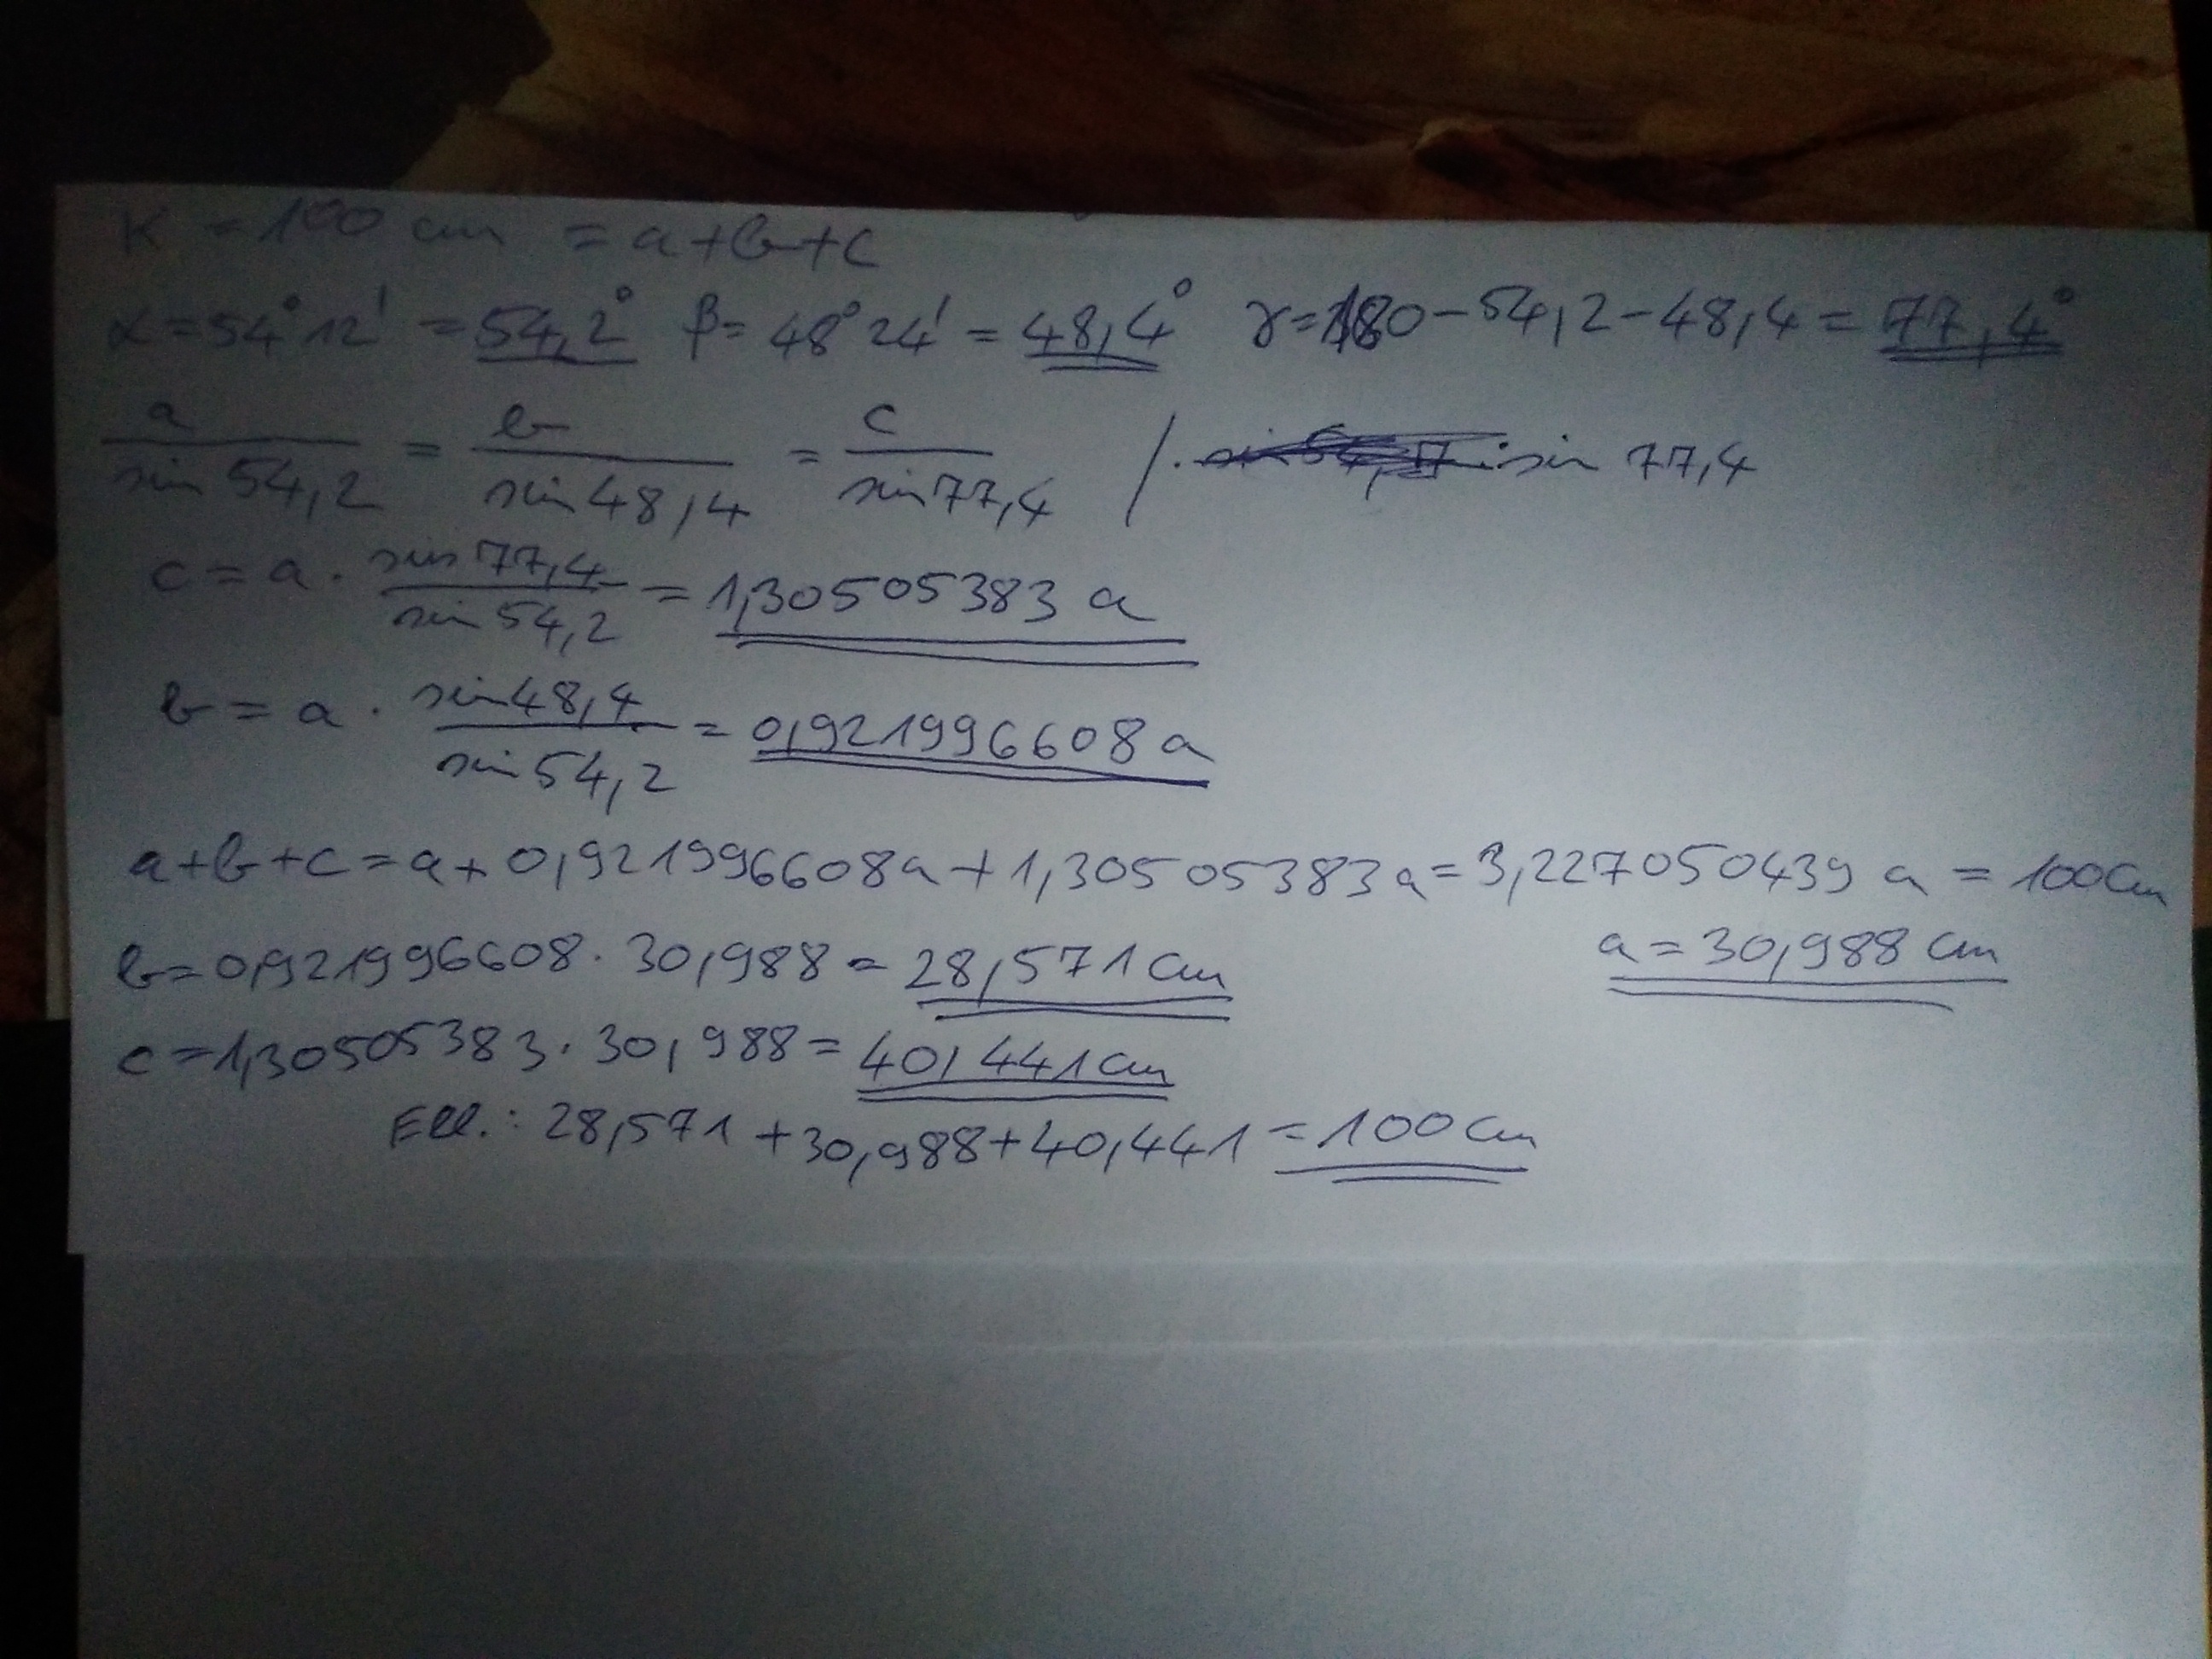 K = 100 cm = a+b+c
α = 54° 12' = 54,2° β = 48° 24' = 48,4° γ = 180 - 54,2 - 48,4 = 77,4°
a / sin 54,2 = b / sin 48,4 = c / sin 77,4 / · sin 77,4
c = a · sin 77,4 / sin 54,2 = 1,30505383 a
b = a · sin 48,4 / sin 54,2 = 0,921996608 a
a+b+c = a + 0,921996608a + 1,30505383a = 3,227050439 a = 100 cm
a = 30,988 cm
b = 0,921996608 · 30,988 = 28,571 cm
c = 1,30505383 · 30,988 = 40,441 cm
Ell.: 28,571 + 30,988 + 40,441 = 100 cm